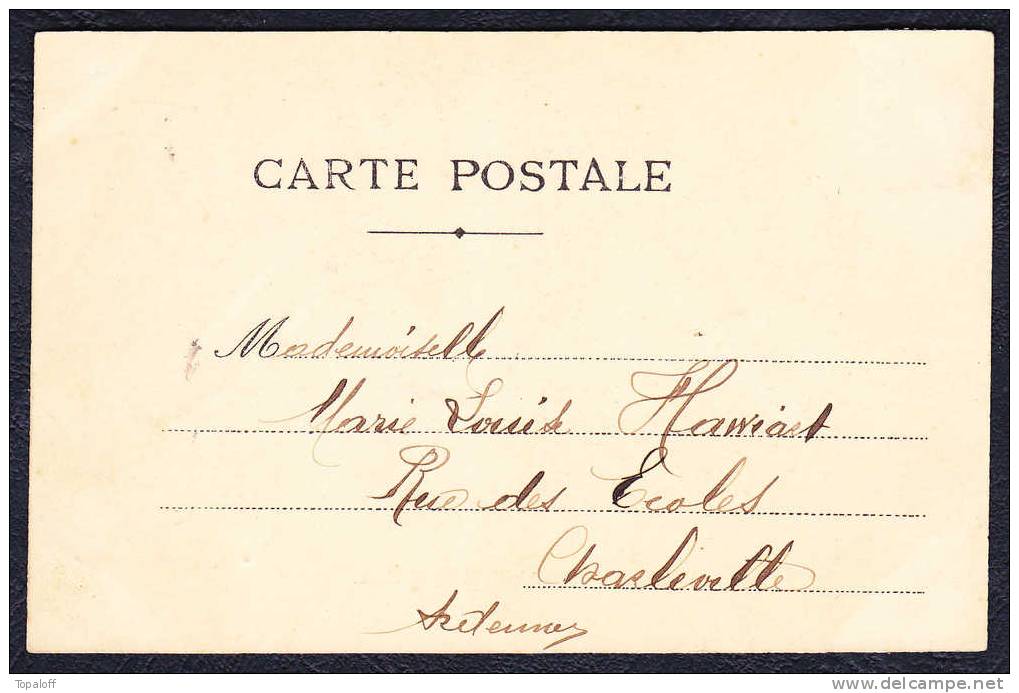 CARTE POSTALE
Mademoiselle
Marie Louise Hawiart
Rue des Ecoles
Charleville
Ardennes
Topaloff
www.delcampe.net